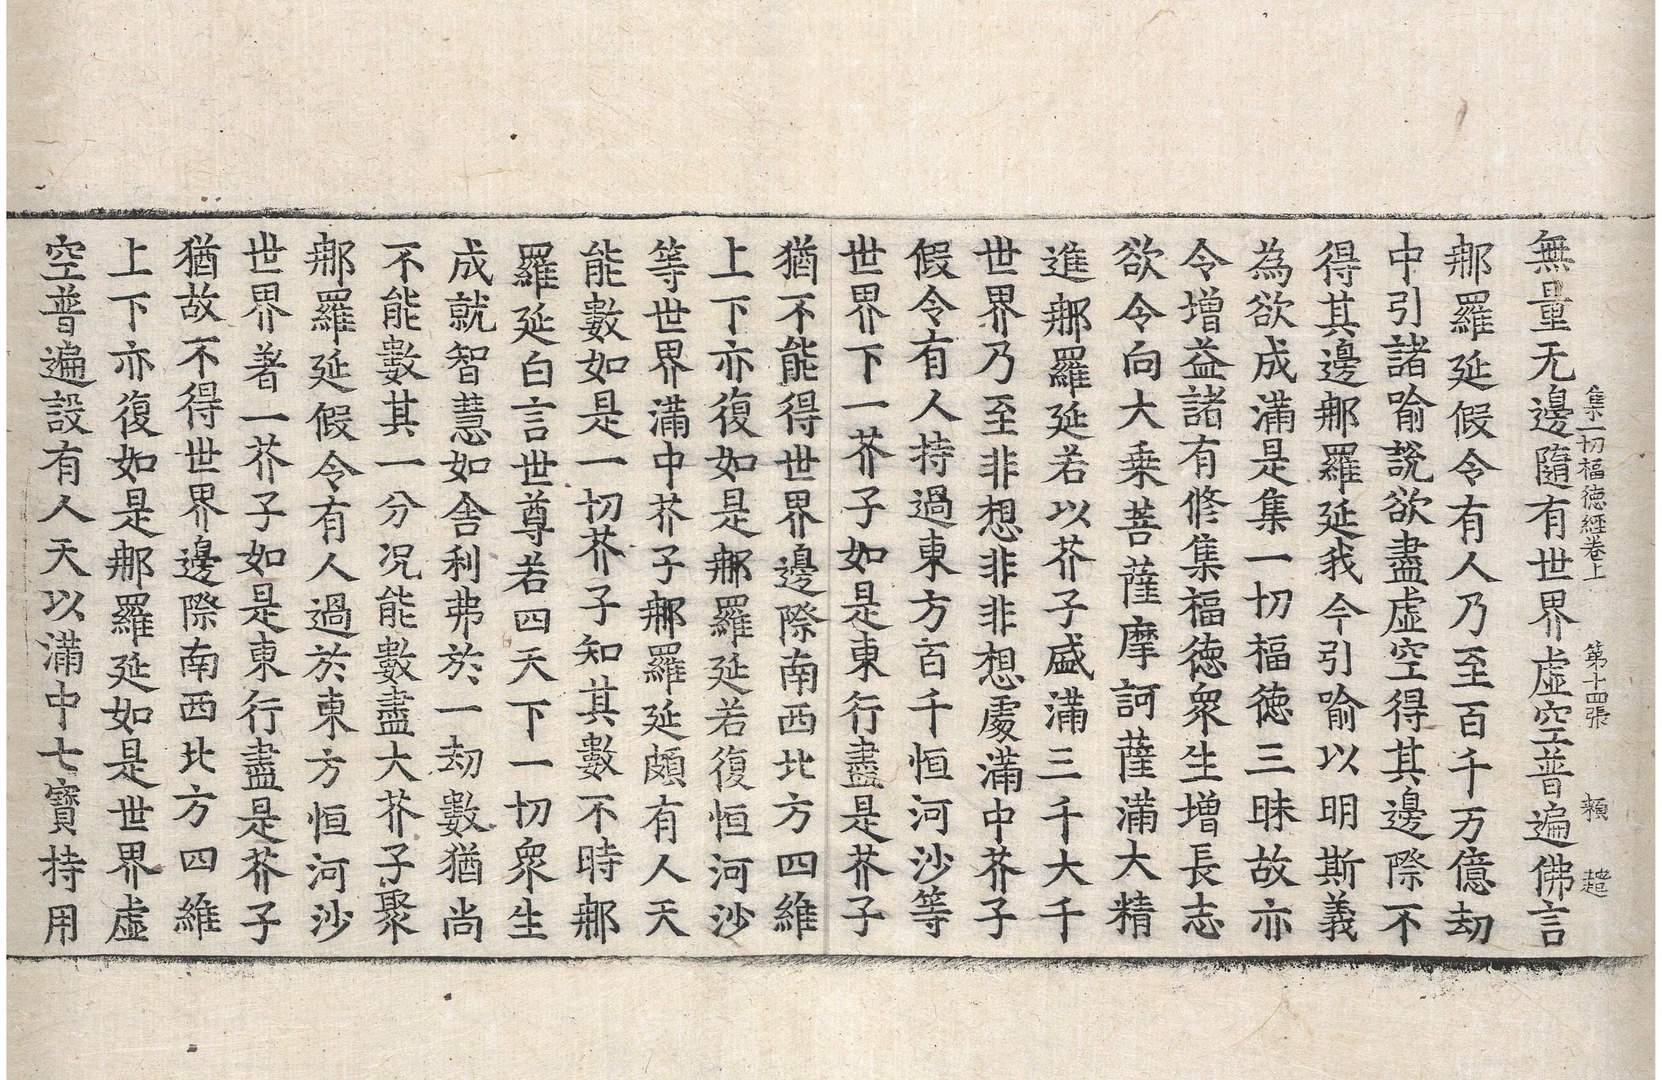 集一切福德經卷上 第十四張 頼 趙
無量无邊隨有世界虛空普遍佛言
那羅延假令有人乃至百千万億劫
中引諸喻說欲盡虛空得其邊際不
得其邊那羅延我今引喻以明斯義
為欲成滿是集一切福德三昧故亦
令增益諸有修集福德衆生增長志
欲令向大乘菩薩摩訶薩滿大精
進那羅延若以芥子盛滿三千大千
世界乃至非想非非想處滿中芥子
假令有人持過東方百千恒河沙等
世界下一芥子如是東行盡是芥子
猶不能得世界邊際南西北方四維
上下亦復如是那羅延若復恒河沙
等世界滿中芥子那羅延頗有人天
能數如是一切芥子知其數不時那
羅延白言世尊若四天下一切衆生
成就智慧如舍利弗於一劫數猶尚
不能數其一分况能數盡大芥子聚
那羅延假令有人過於東方恒河沙
世界著一芥子如是東行盡是芥子
猶故不得世界邊際南西北方四維
上下亦復如是那羅延如是世界虛
空普遍設有人天以滿中七寶持用